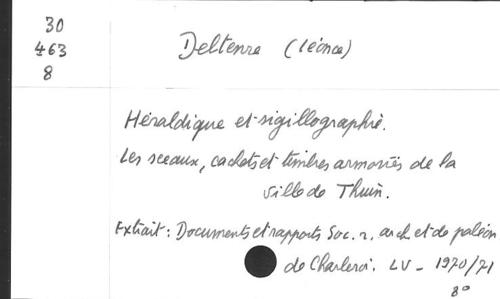 30
463
8
Deltenre (Léonce)
Héraldique et sigillographie.
Les sceaux, cachets et timbres armoriés de la
ville de Thuin.
Extrait: Documents et rapports Soc. r. arch et de paléon
de Charleroi. LV - 1970/71
8°